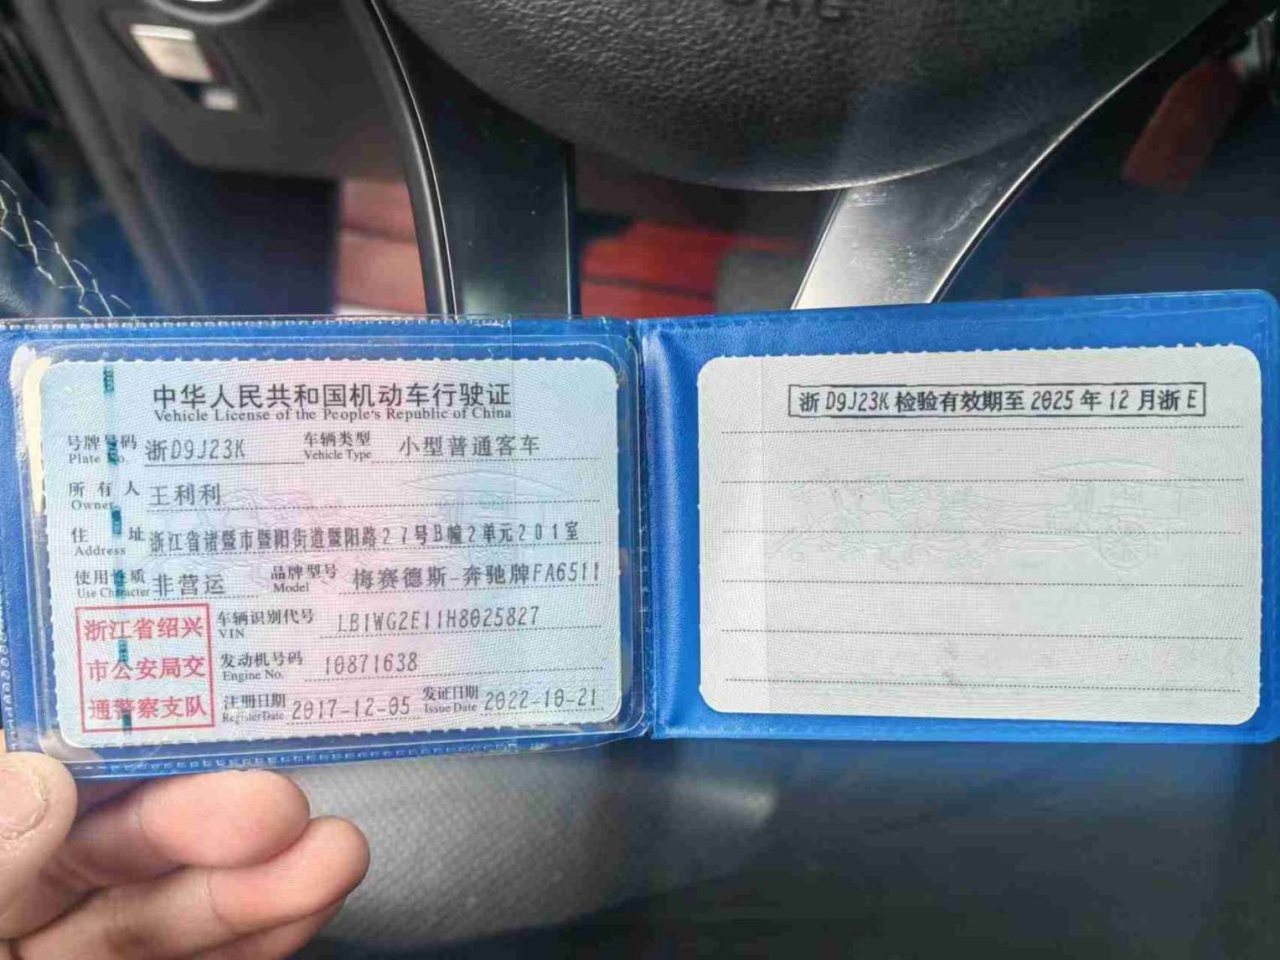 中华人民共和国机动车行驶证
Vehicle License of the People's Republic of China
号牌号码 浙D9J23K 车辆类型 小型普通客车
Plate No. Vehicle Type
所有人 王利利
Owner
住址 浙江省诸暨市暨阳街道暨阳路27号B幢2单元201室
Address
使用性质 非营运 品牌型号 梅赛德斯-奔驰牌FA6511
Use Character Model
浙江省绍兴
市公安局交
通警察支队
车辆识别代号 LB1WG2E11H8025827
VIN
发动机号码 10871638
Engine No.
注册日期 2017-12-05 发证日期 2022-10-21
Register Date Issue Date
浙D9J23K 检验有效期至 2025 年 12 月浙 E